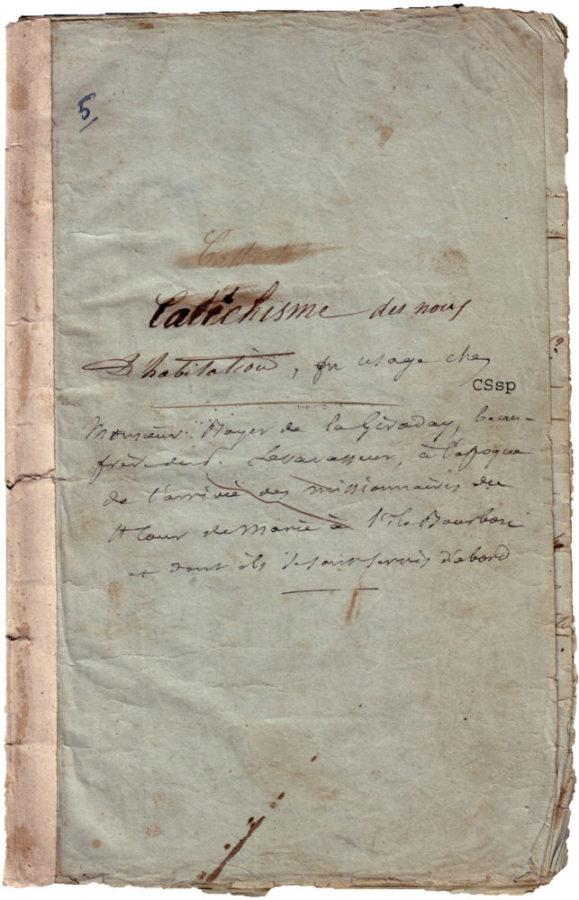 5
Catéchisme des noirs
d'habitation, en usage chez
CSsp
Monsieur Boyer de la Giroday, beau-
frère du P. Levavasseur, à l'époque
de l'arrivée des missionnaires du
St Cœur de Marie à l'île Bourbon
et dont ils se sont servis d'abord